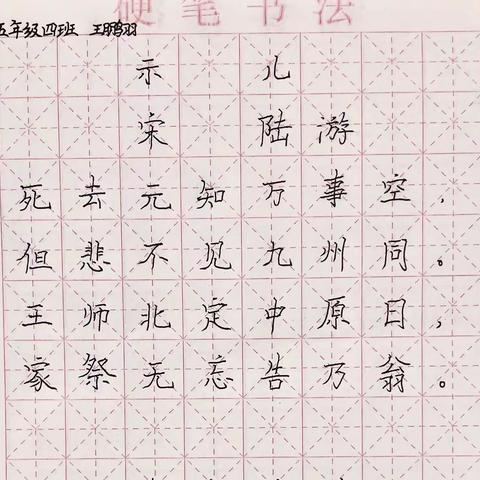 硬笔书法
五年级四班 王鹏羽
示儿
宋 陆游
死去元知万事空，
但悲不见九州同。
王师北定中原日，
家祭无忘告乃翁。